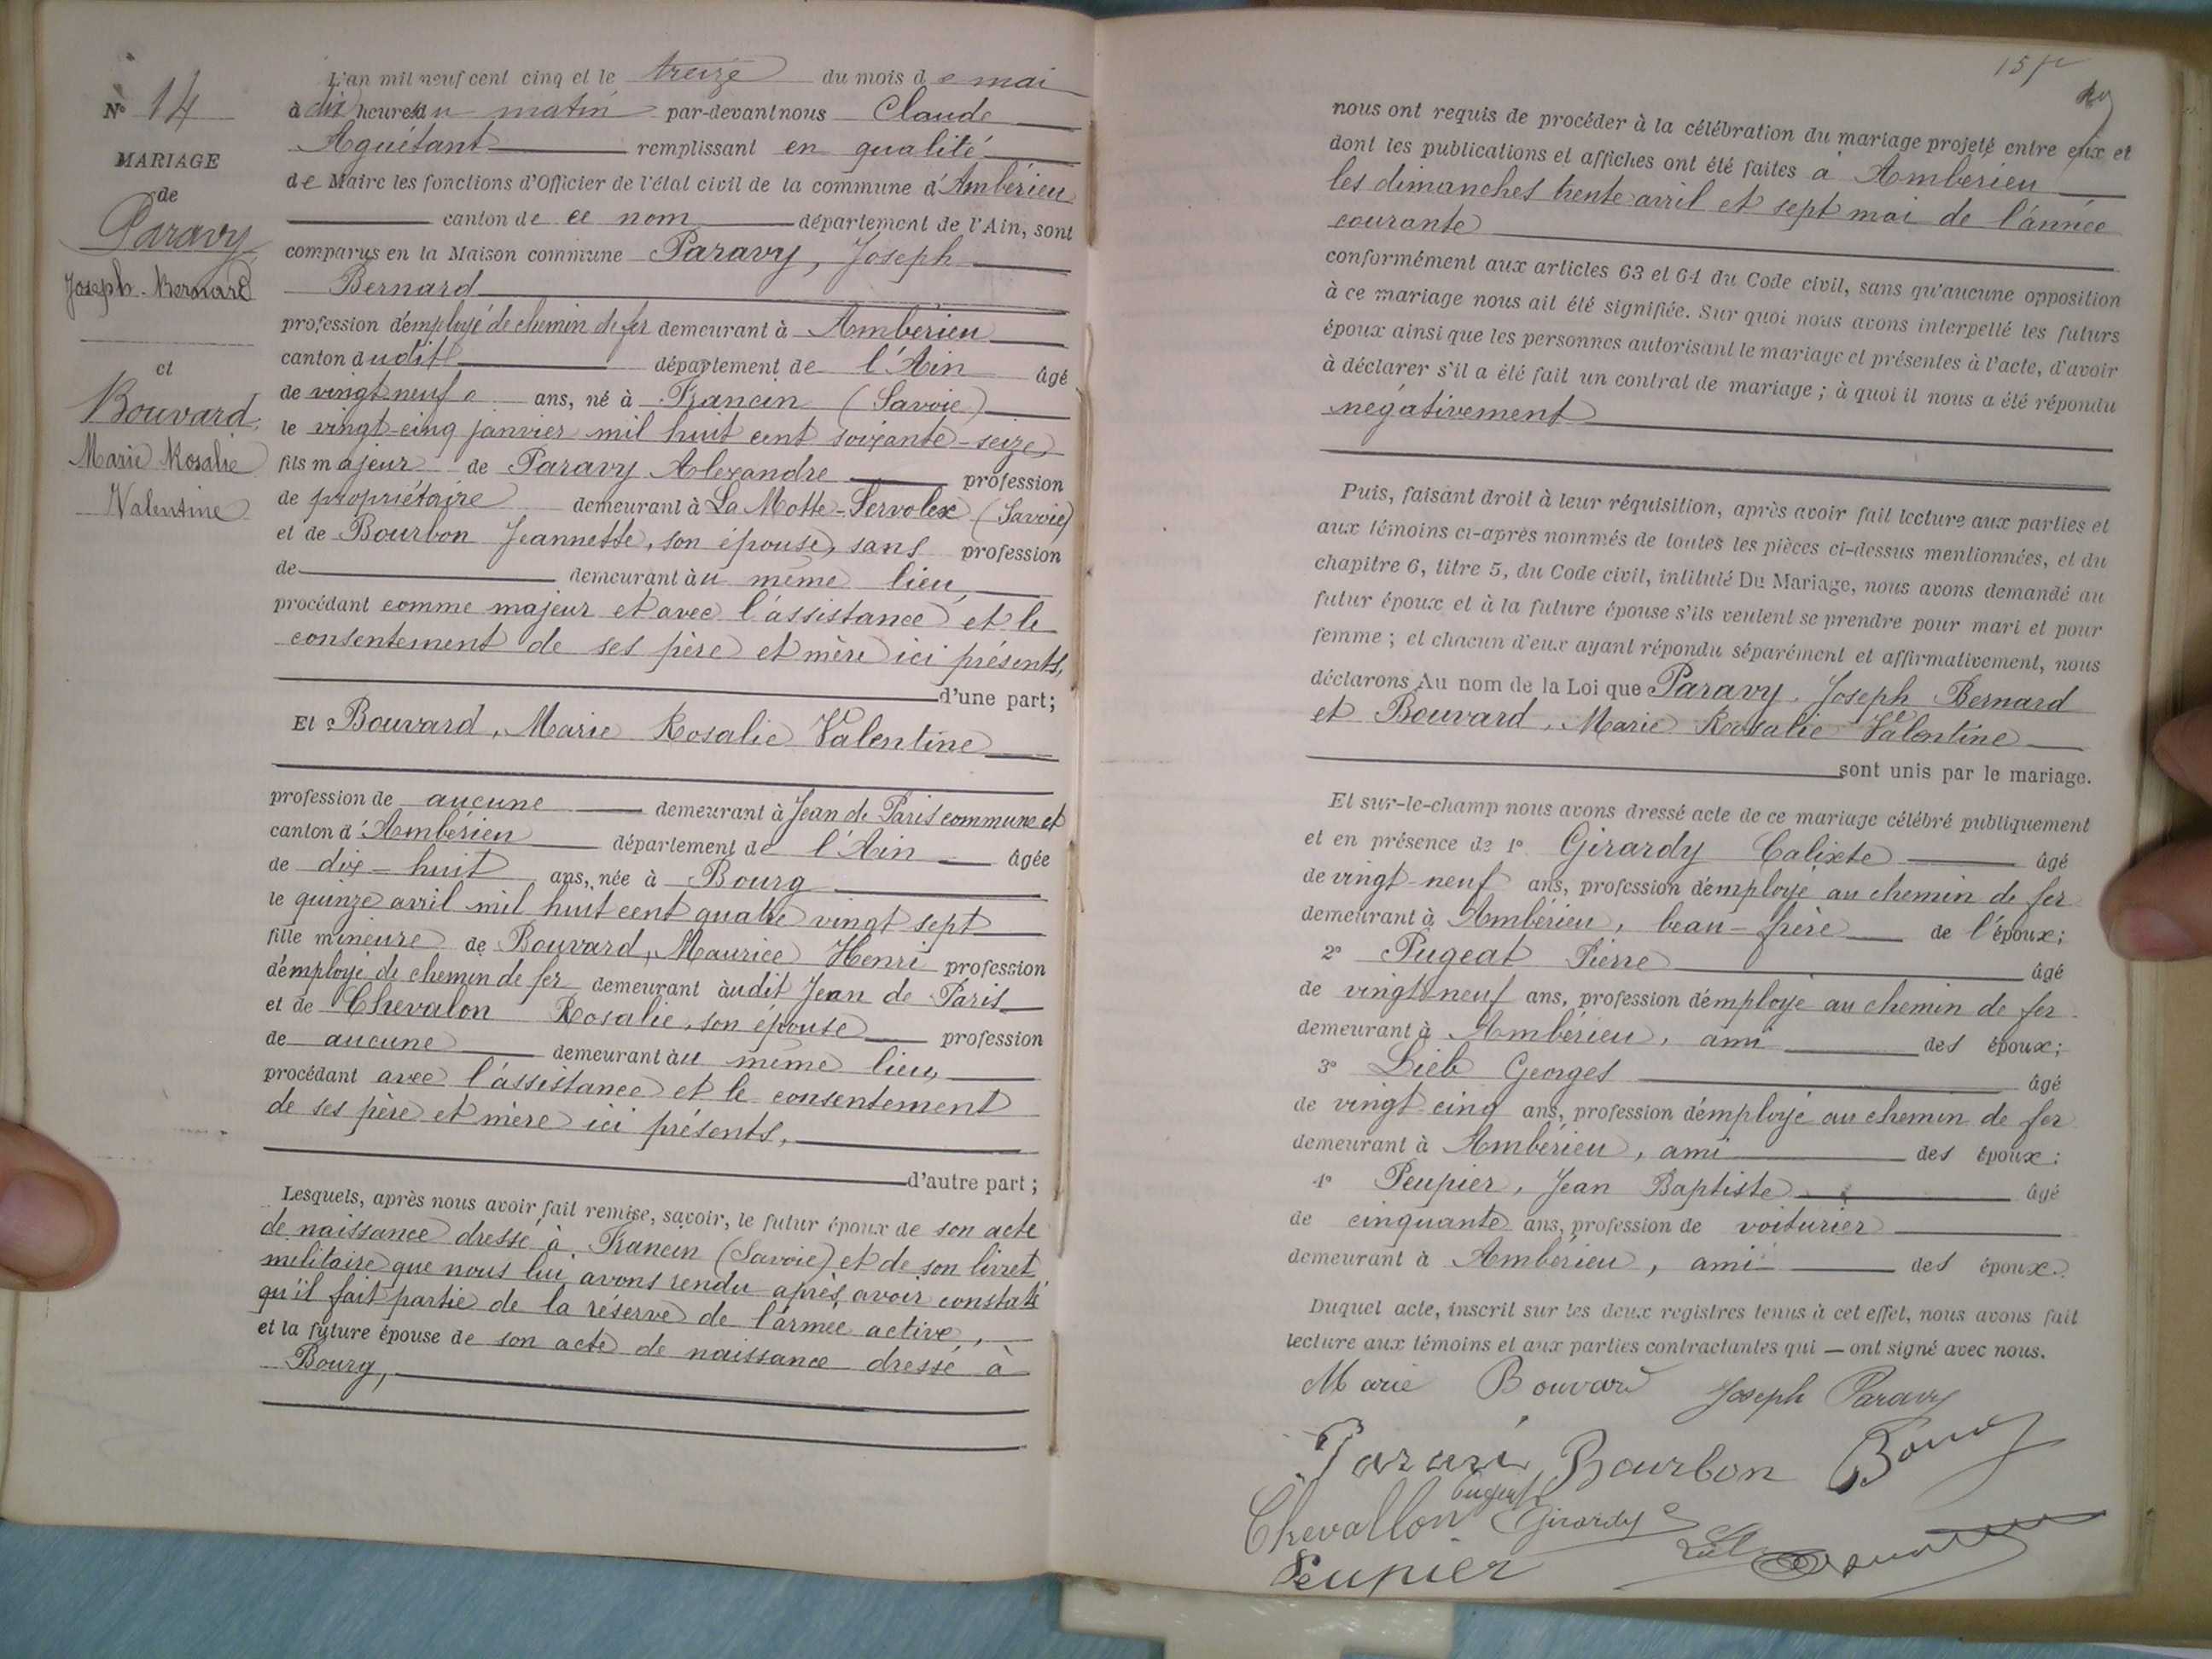 N° 14
MARIAGE
de
Paravy
Joseph-Bernard
et
Bouvard
Marie Rosalie
Valentine
L'an mil neuf cent cinq et le treize du mois de mai
à dix heures du matin par-devant nous Claude
Aguétant remplissant en qualité
de Maire les fonctions d'Officier de l'état civil de la commune d'Ambérieu
canton de ce nom département de l'Ain, sont
comparus en la Maison commune Paravy, Joseph
Bernard
profession d'employé de chemin de fer demeurant à Ambérieu
canton dudit département de l'Ain âgé
de vingt neuf ans, né à Francin (Savoie)
le vingt-cinq janvier mil huit cent soixante-seize,
fils majeur de Paravy Alexandre profession
de propriétaire demeurant à La Motte-Servolex (Savoie)
et de Bourbon Jeannette, son épouse, sans profession
de demeurant au même lieu,
procédant comme majeur et avec l'assistance et le
consentement de ses père et mère ici présents,
d'une part;
Et Bouvard, Marie Rosalie Valentine
profession de aucune demeurant à Jean de Paris commune et
canton d'Ambérieu département de l'Ain âgée
de dix-huit ans, née à Bourg
le quinze avril mil huit cent quatre vingt sept
fille mineure de Bouvard, Maurice Henri profession
d'employé de chemin de fer demeurant audit Jean de Paris
et de Chevalon Rosalie, son épouse profession
de aucune demeurant au même lieu,
procédant avec l'assistance et le consentement
de ses père et mère ici présents,
d'autre part;
Lesquels, après nous avoir fait remise, savoir, le futur époux de son acte
de naissance dressé à Francin (Savoie) et de son livret
militaire que nous lui avons rendu après avoir constaté
qu'il fait partie de la réserve de l'armée active,
et la future épouse de son acte de naissance dressé à
Bourg,
nous ont requis de procéder à la célébration du mariage projeté entre eux et
dont les publications et affiches ont été faites à Ambérieu
les dimanches trente avril et sept mai de l'année
courante
conformément aux articles 63 et 64 du Code civil, sans qu'aucune opposition
à ce mariage nous ait été signifiée. Sur quoi nous avons interpellé les futurs
époux ainsi que les personnes autorisant le mariage et présentes à l'acte, d'avoir
à déclarer s'il a été fait un contrat de mariage; à quoi il nous a été répondu
négativement
Puis, faisant droit à leur réquisition, après avoir fait lecture aux parties et
aux témoins ci-après nommés de toutes les pièces ci-dessus mentionnées, et du
chapitre 6, titre 5, du Code civil, intitulé Du Mariage, nous avons demandé au
futur époux et à la future épouse s'ils veulent se prendre pour mari et pour
femme; et chacun d'eux ayant répondu séparément et affirmativement, nous
déclarons Au nom de la Loi que Paravy, Joseph Bernard
et Bouvard, Marie Rosalie Valentine
sont unis par le mariage.
Et sur-le-champ nous avons dressé acte de ce mariage célébré publiquement
et en présence de 1° Girardy Calixte âgé
de vingt-neuf ans, profession d'employé au chemin de fer
demeurant à Ambérieu, beau-frère de l'époux;
2° Pugeat Pierre âgé
de vingt neuf ans, profession d'employé au chemin de fer
demeurant à Ambérieu, ami des époux;
3° Lieb Georges âgé
de vingt cinq ans, profession d'employé au chemin de fer
demeurant à Ambérieu, ami des époux;
4° Peupier, Jean Baptiste âgé
de cinquante ans, profession de voiturier
demeurant à Ambérieu, ami des époux.
Duquel acte, inscrit sur les deux registres tenus à cet effet, nous avons fait
lecture aux témoins et aux parties contractantes qui — ont signé avec nous.
Marie Bouvard Joseph Paravy
Paravi Bourbon
Chevallon Girardy
Peupier